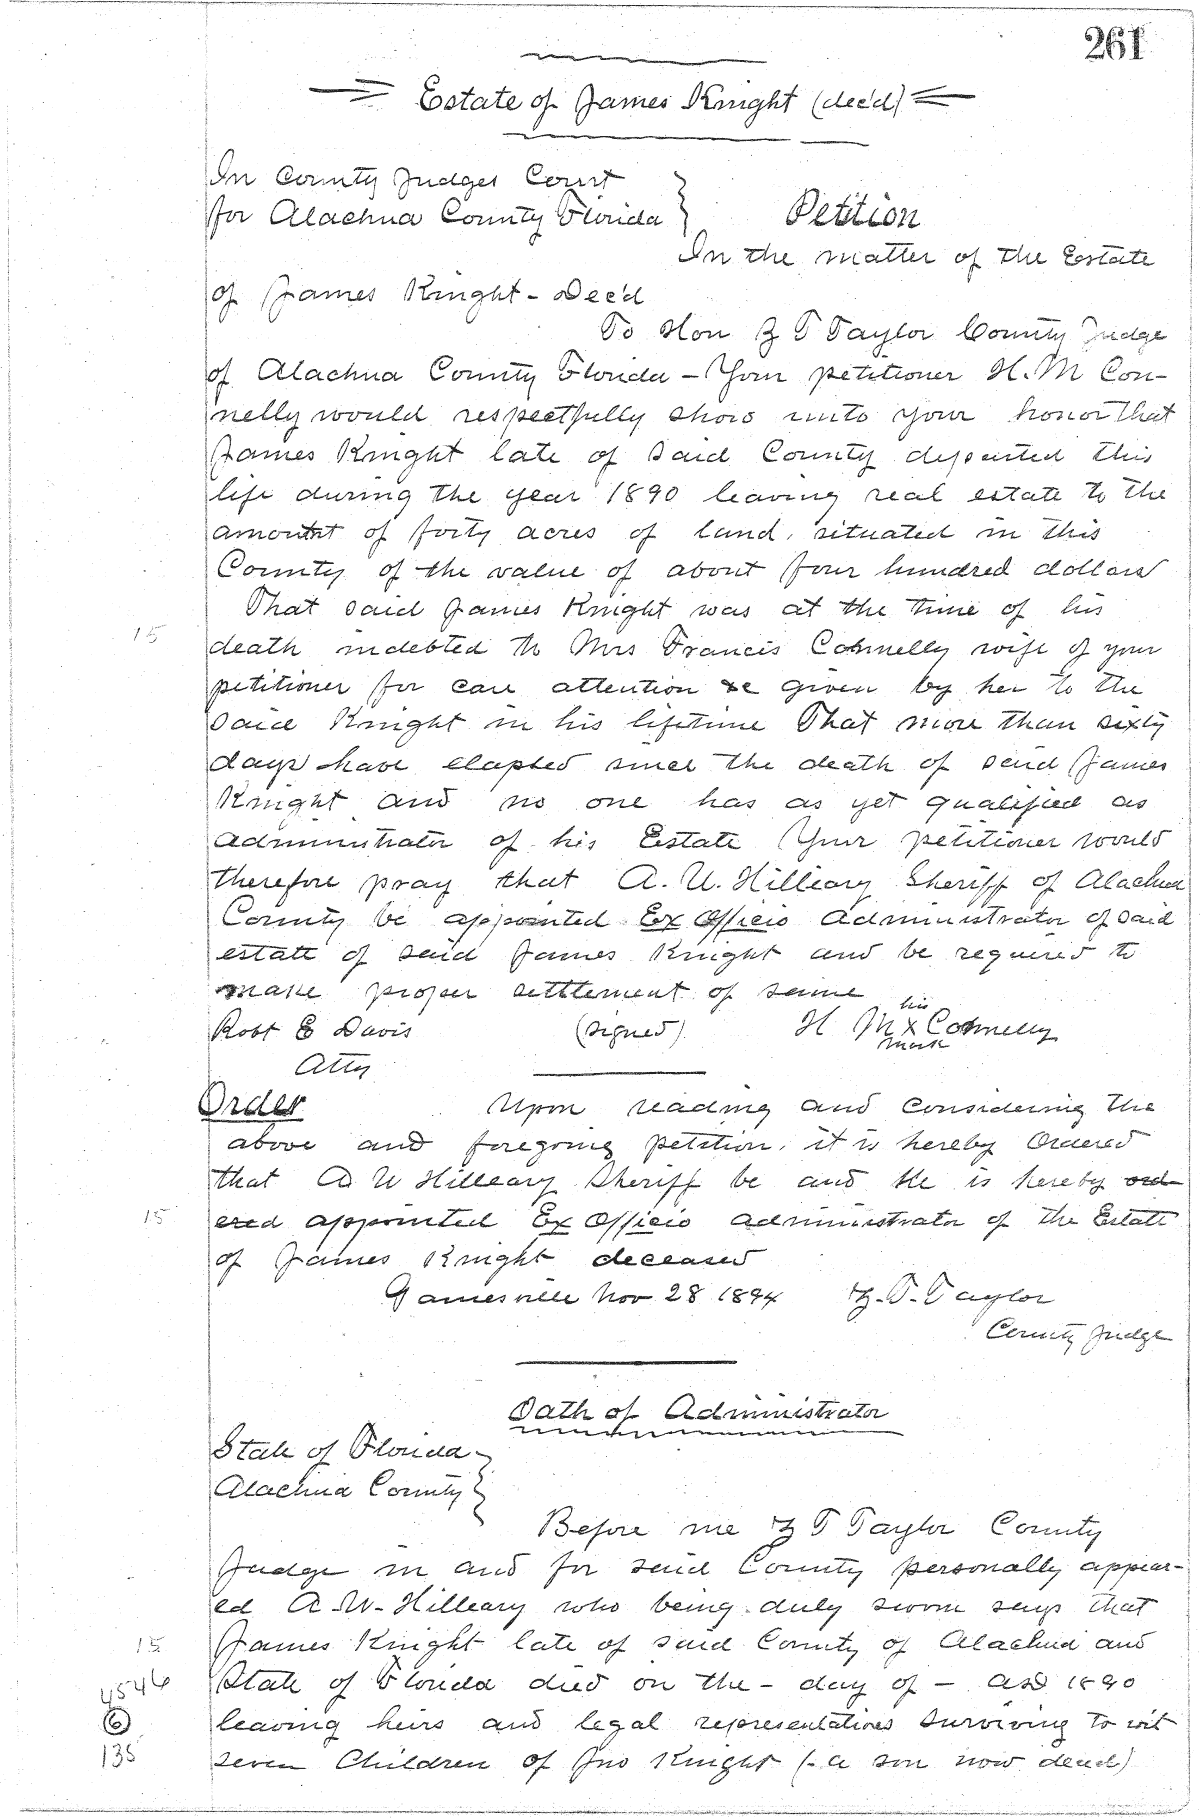 261
Estate of James Knight (dec'd)
In County Judges Court
for Alachua County Florida
Petition
In the matter of the Estate
of James Knight - Dec'd
To Hon Z T Taylor County Judge
of Alachua County Florida - Your petitioner H. M Con-
nelly would respectfully show unto your honor that
James Knight late of said County departed this
life during the year 1890 leaving real estate to the
amount of forty acres of land, situated in this
County of the value of about four hundred dollars
That said James Knight was at the time of his
15
death indebted to Mrs Francis Connelly wife of your
petitioner for care attention &c given by her to the
said Knight in his lifetime That more than sixty
days have elapsed since the death of said James
Knight and no one has as yet qualified as
administrator of his Estate Your petitioner would
therefore pray that A. W. Hilleary Sheriff of Alachua
County be appointed Ex Officio administrator of said
estate of said James Knight and be required to
make proper settlement of same
his
Robt E Davis (signed) H M x Connelly
mark
Atty
Order Upon reading and considering the
above and foregoing petition, it is hereby Ordered
that A W Hilleary Sheriff be and He is hereby ord-
15
ered appointed Ex Officio administrator of the Estate
of James Knight deceased
Gainesville Nov 28 1894 Z. T. Taylor
County Judge
Oath of Administrator
State of Florida
Alachua County
Before me Z T Taylor County
Judge in and for said County personally appear-
ed A. W. Hilleary who being duly sworn says that
15
James Knight late of said County of Alachua and
State of Florida died on the - day of - AD 1890
4546
leaving heirs and legal representatives surviving to wit
6
seven Children of Jno Knight (- a son now dead)
135